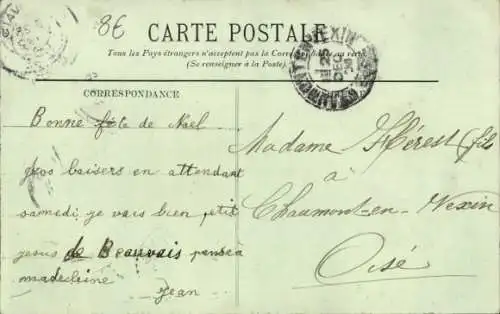 8€
CARTE POSTALE
Tous les Pays étrangers n'acceptent pas la Correspondance au verso
(Se renseigner à la Poste)
CORRESPONDANCE
Bonne fête de Noel
gros baisers en attendant
samedi, je vais bien petit
jesus de Beauvais pense à
madeleine
Jean
Madame Hérest (fils
à
Chaumont-en-Vexin
Oise
25
DEC